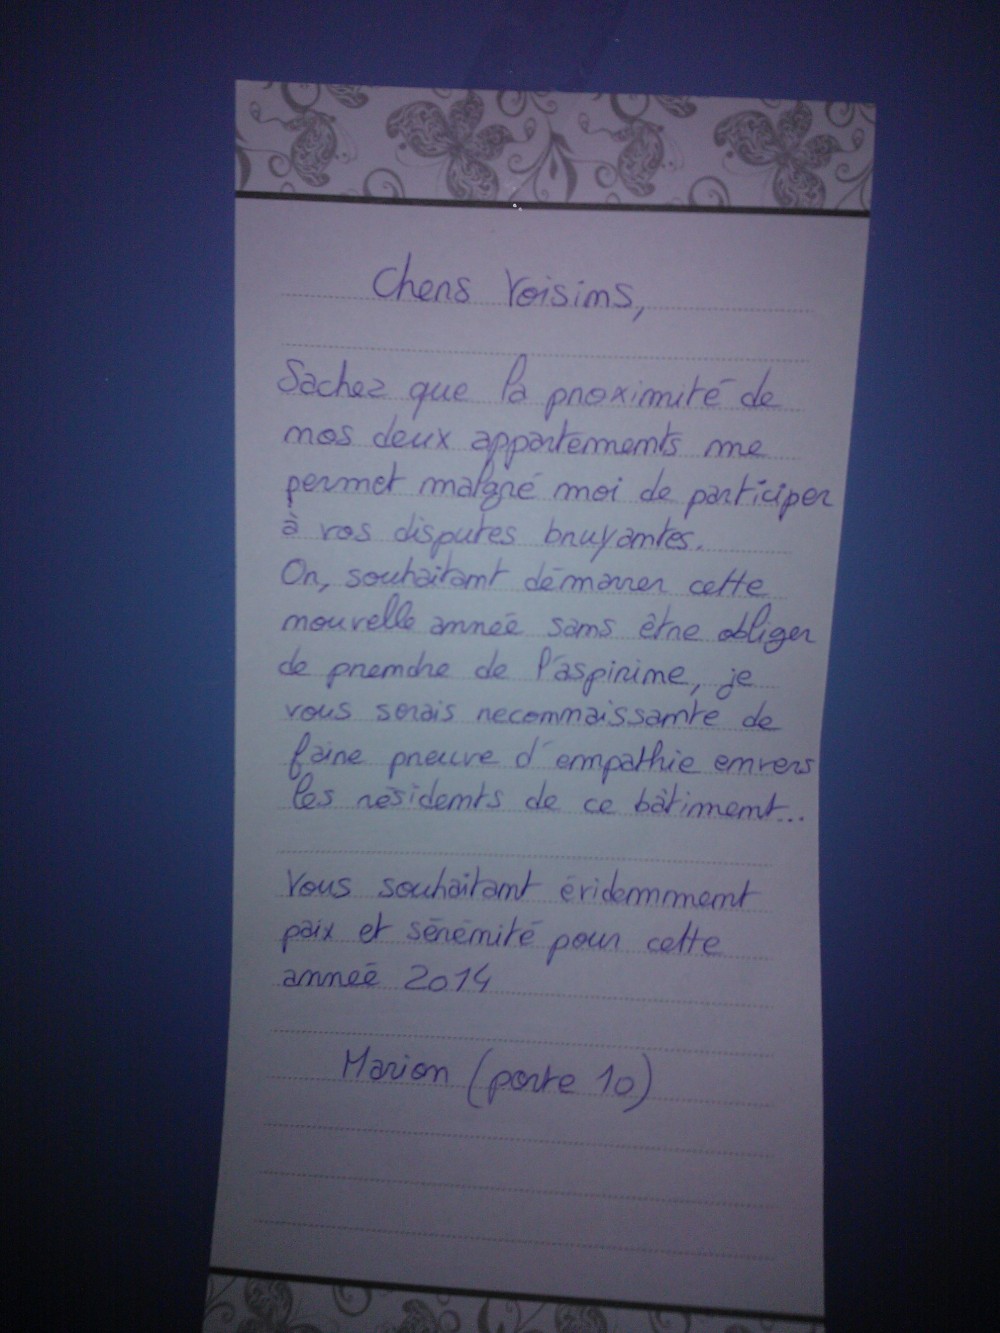 Chers Voisins,
Sachez que la proximité de
nos deux appartements me
permet malgré moi de participer
à vos disputes bruyantes.
Or, souhaitant démarrer cette
nouvelle année sans être obliger
de prendre de l'aspirine, je
vous serais reconnaissante de
faire preuve d'empathie envers
les résidents de ce bâtiment...
Vous souhaitant évidemmment
paix et sérénité pour cette
année 2014
Marion (porte 10)